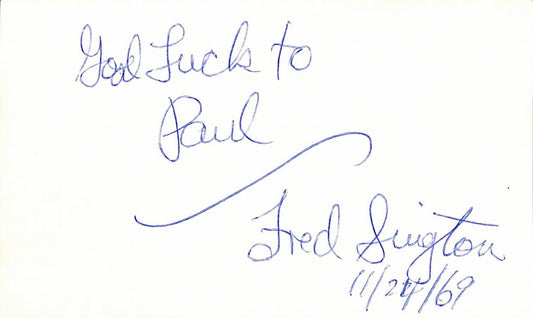 Good Luck to
Paul
Fred Sington
11/24/69